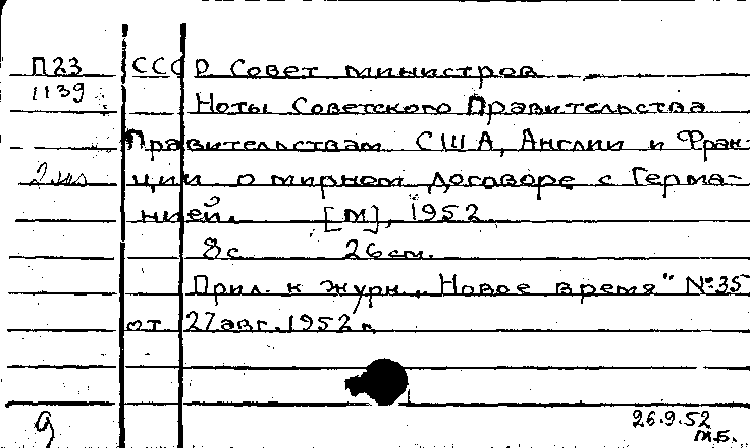 П23 СССР Совет министров
1139 Ноты Советского Правительства
Правительствам США, Англии и Фран-
2 экз ции о мирном договоре с Герма-
нией. [М], 1952.
8 с 26 см.
Прил. к журн. „Новое время" № 35
от 27 авг. 1952 г.
g 26.9.52
м.Б.